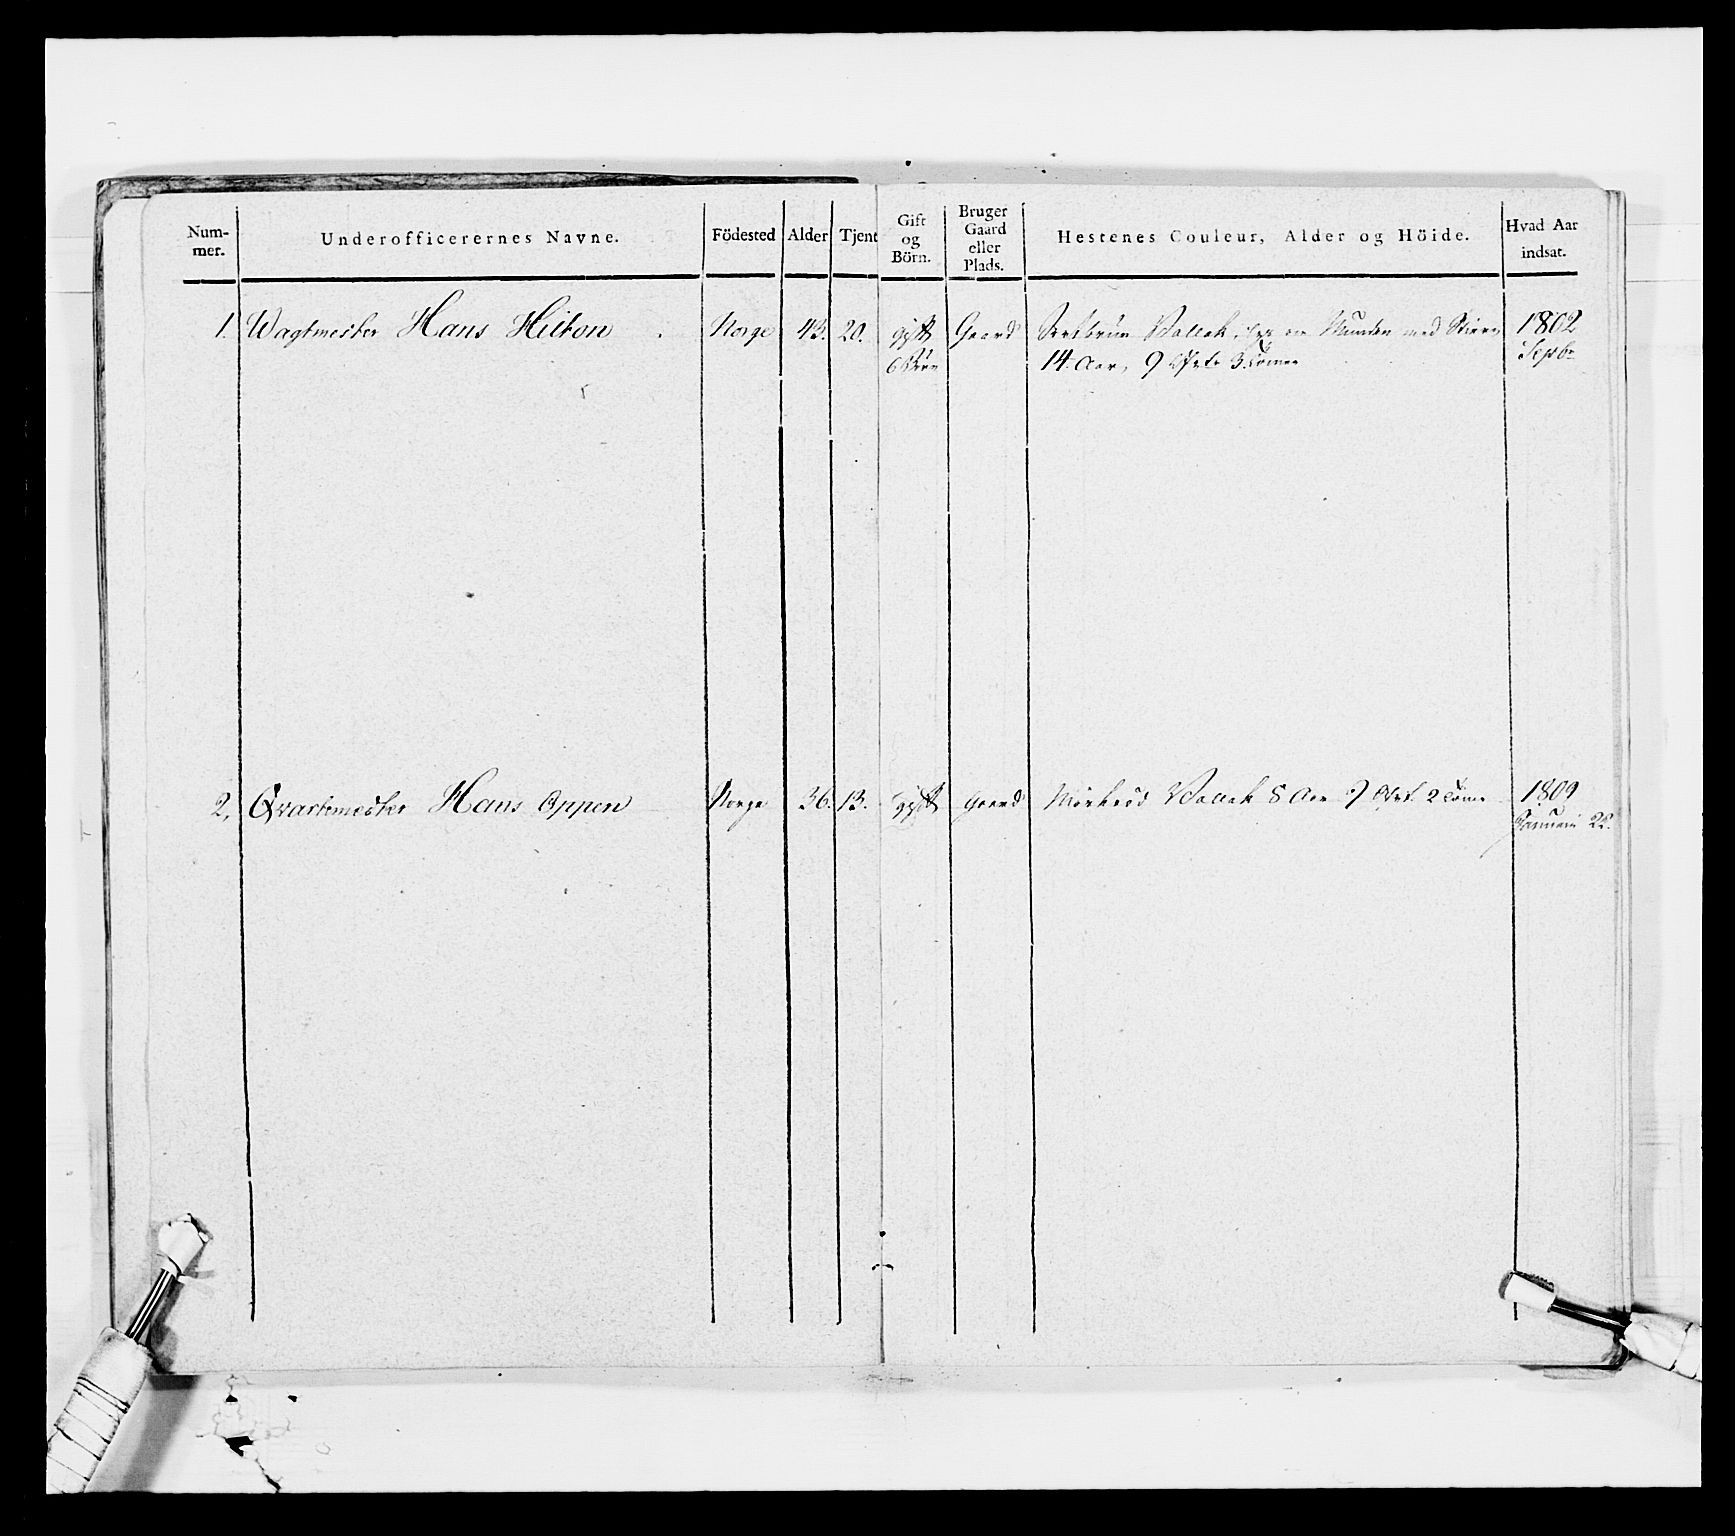 Num-
mer.
Underofficerernes Navne.
Födested
Alder
Tjent
Gift
og
Börn.
Bruger
Gaard
eller
Plads.
Hestenes Couleur, Alder og Höide.
Hvad Aar
indsat.
1. Wagtmester Hans Hilton Norge 43. 20. gift Gaard Vallak med 1802
6 Börn 14 Aar, 9 3 Tomer Septbr
2, Qvartermester Hans Oppen Norge 36. 13. gift Gaard Mörkröd Vallak 8 Aar 9 2 Tome 1809
Januarii 22.